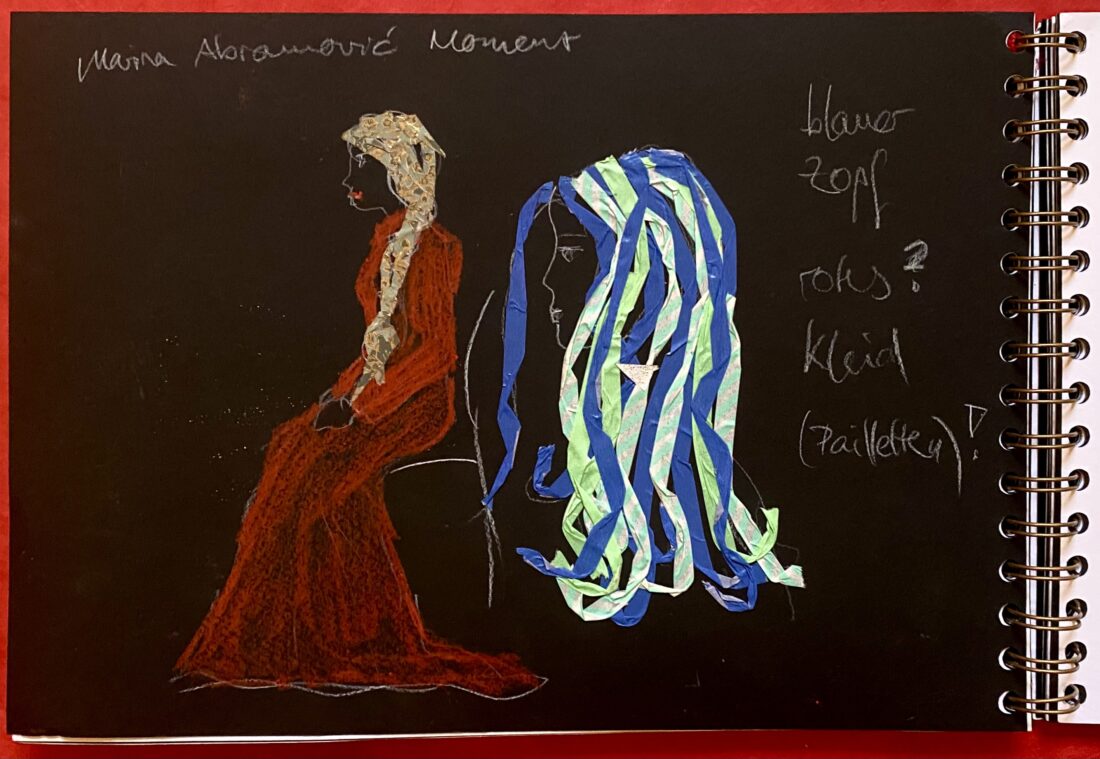 Marina Abramović Moment
blauer
Zopf
rotes ?
Kleid
(Pailletten) !